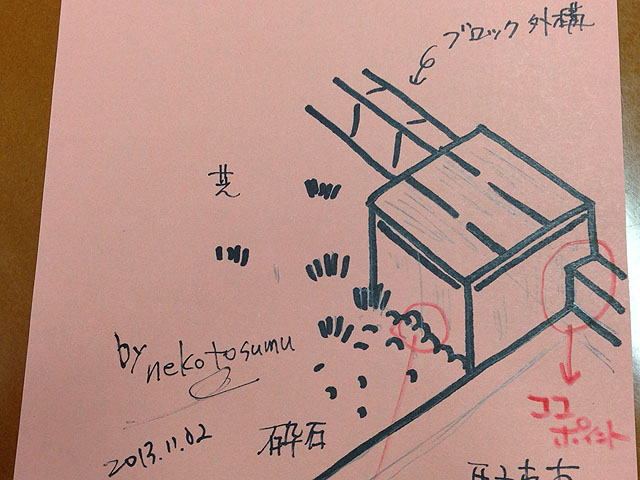 ブロック外構
芝
by nekotosumu
2013.11.02
砕石
ココ
ポイント